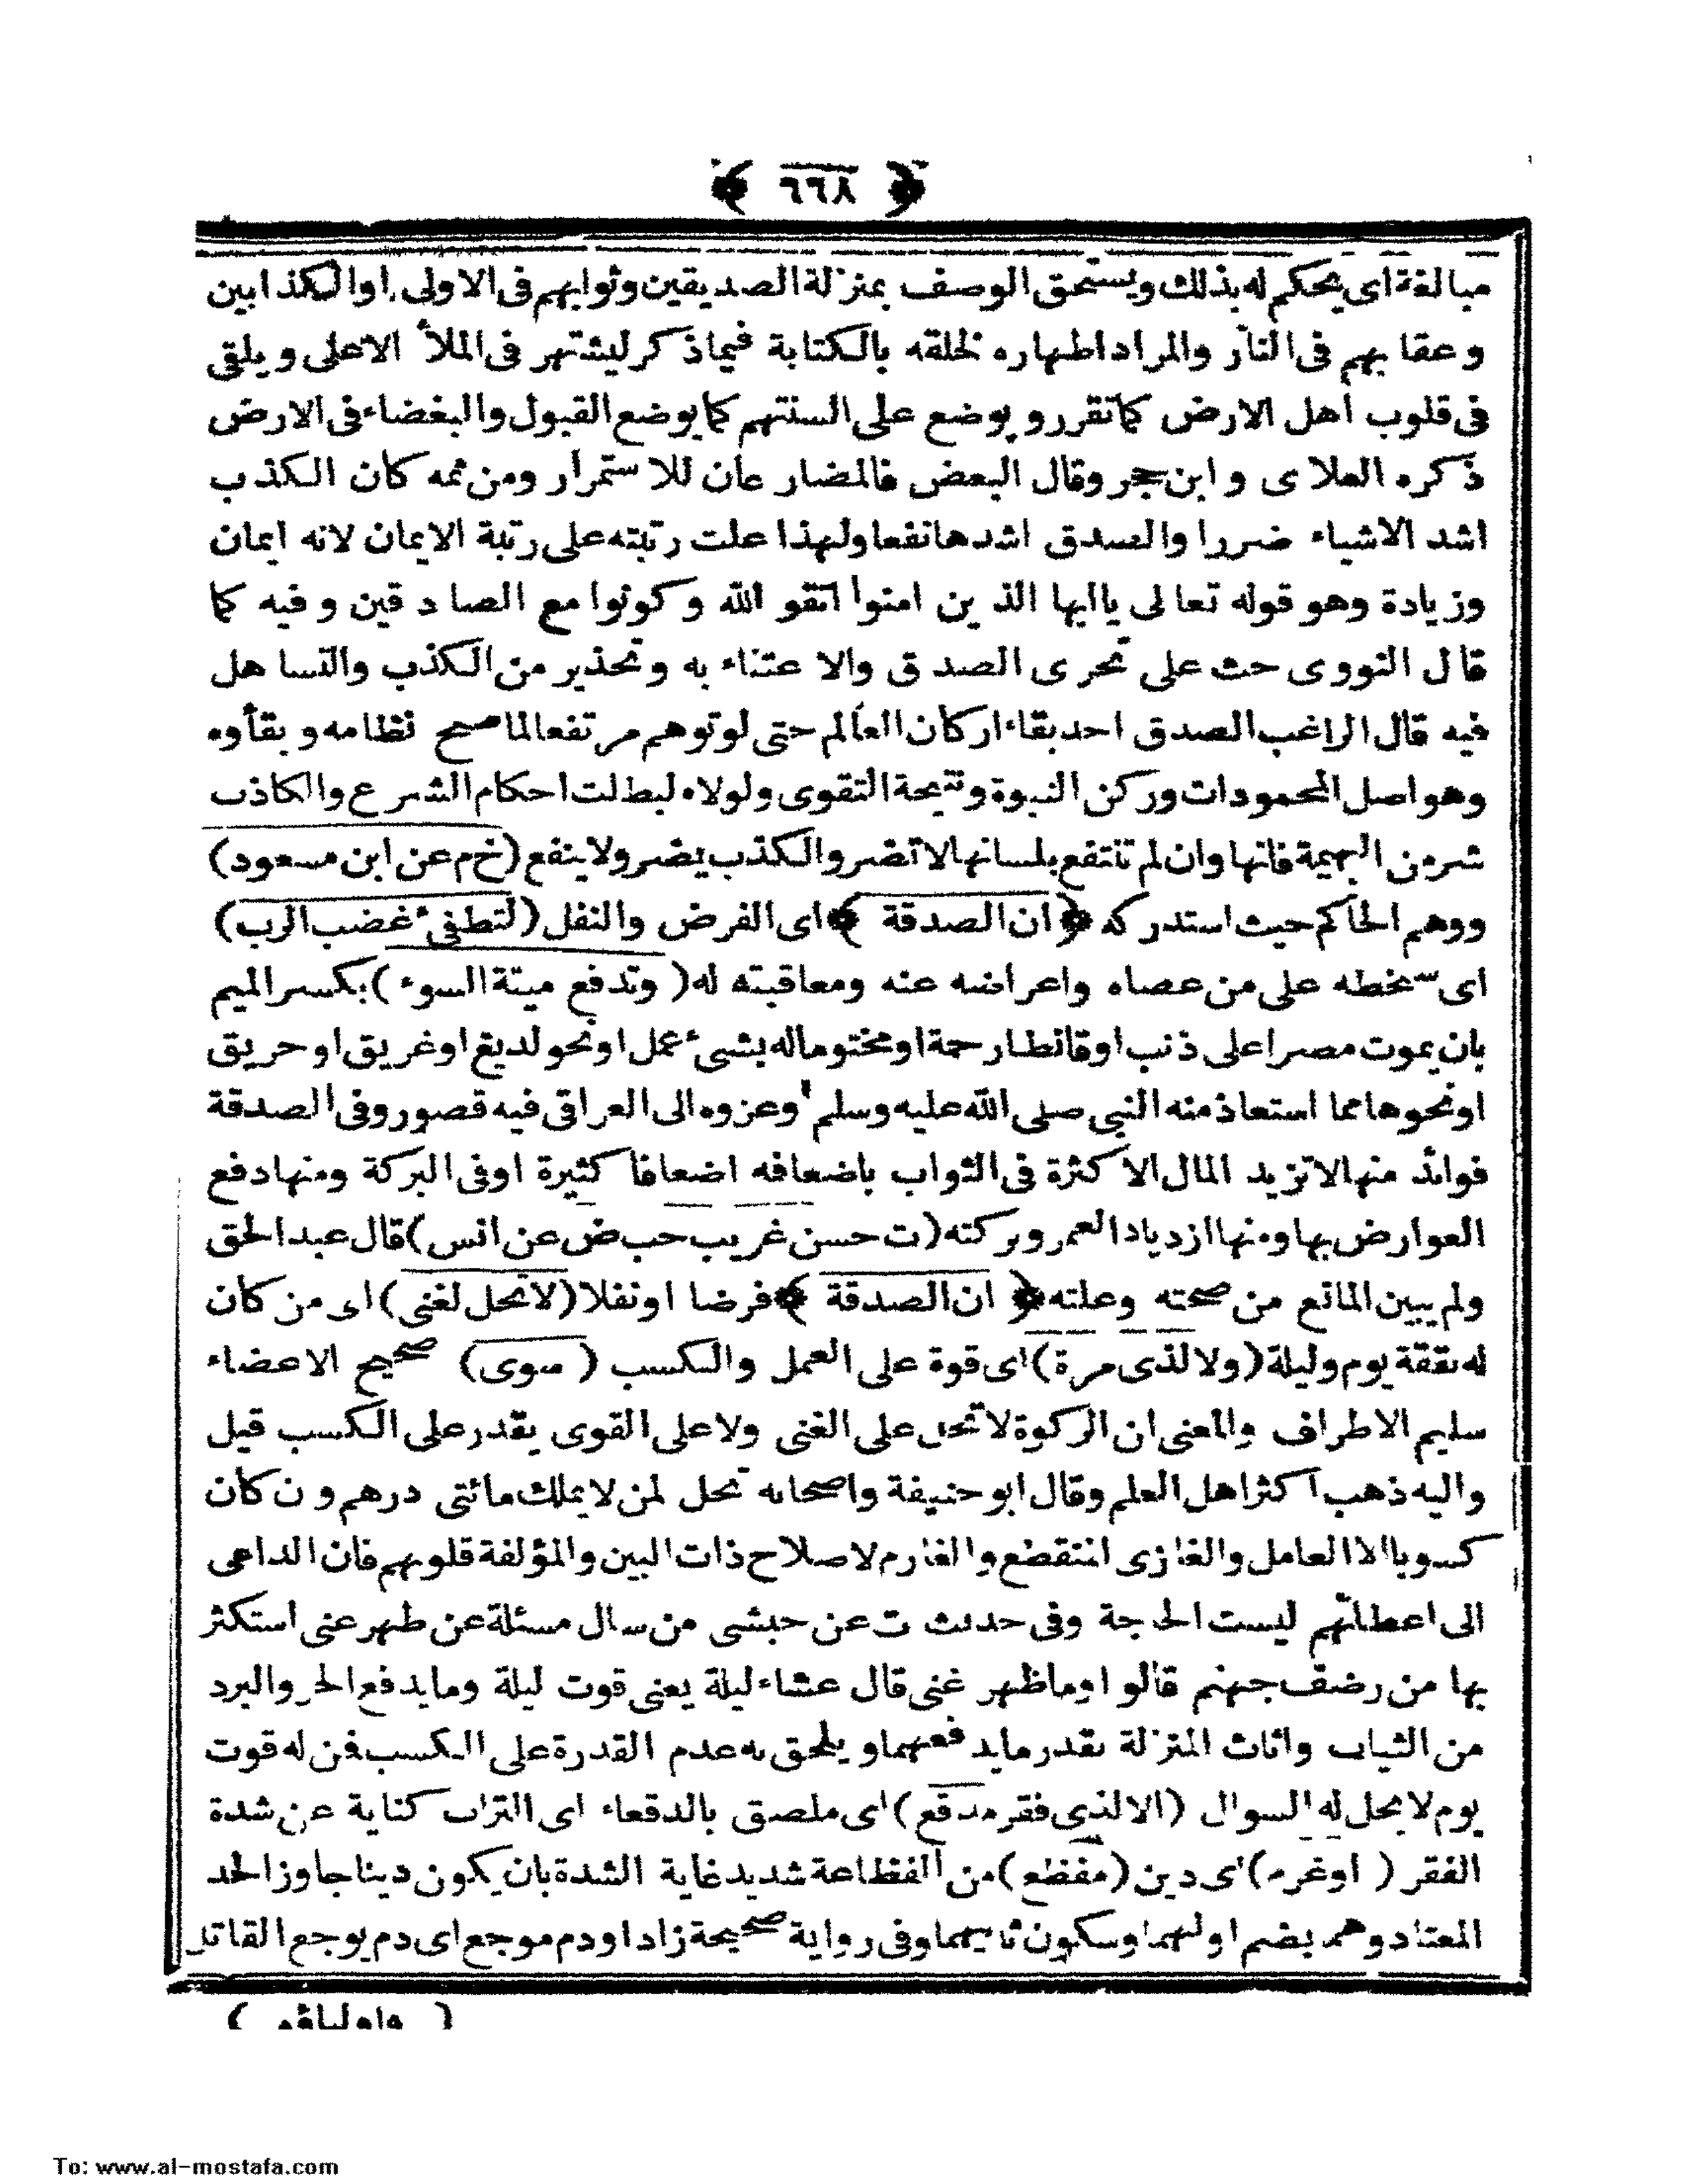 ﴿ ٦٦٨ ﴾
مبالغة اى يحكم له بذلك ويستحق الوصف بمنزلة الصديقين وثوابهم فى الاولى او الكذابين
وعقابهم فى النار والمراد اظهاره لخلقه بالكتابة فيما ذكر ليشتهر فى الملأ الاعلى ويلقى
فى قلوب اهل الارض كما تقرر ويوضع على السنتهم كما يوضع القبول والبغضاء فى الارض
ذكره العلاى وابن حجر وقال البعض فالمضارعان للاستمرار ومن ثمه كان الكذب
اشد الاشياء ضررا والصدق اشدها نفعا ولهذا علت رتبته على رتبة الايمان لانه ايمان
وزيادة وهو قوله تعالى ياايها الذين امنوا اتقو الله وكونوا مع الصادقين وفيه كما
قال النووى حث على تحرى الصدق والاعتناء به وتحذير من الكذب والتساهل
فيه قال الراغب الصدق احد بقاء اركان العالم حتى لو توهم مرتفعا لما صح نظامه وبقأوه
وهو اصل المحمودات وركن النبوة ونتيجة التقوى ولولاه لبطلت احكام الشرع والكاذب
شر من البهيمة فانها وان لم تنتفع بلسانها لا تضر والكذب يضر ولا ينفع (خ م عن ابن مسعود)
ووهم الحاكم حيث استدركه ﴿ ان الصدقة ﴾ اى الفرض والنفل (لتطفئ غضب الرب)
اى سخطه على من عصاه واعراضه عنه ومعاقبته له (وتدفع ميتة السوء) بكسر الميم
بان يموت مصرا على ذنب او قانطا رحمة او مختوما له بشىء عمل او نحو لديغ او غريق او حريق
او نحوها مما استعاذ منه النبى صلى الله عليه وسلم وعزوه الى العراقى فيه قصور وفى الصدقة
فوائد منها لا تزيد المال الا كثرة فى الثواب باضعافه اضعافا كثيرة او فى البركة ومنها دفع
العوارض بها ومنها ازدياد العمر وبركته (ت حسن غريب حب ض عن انس) قال عبد الحق
ولم يبين المانع من صحته وعلته ﴿ ان الصدقة ﴾ فرضا او نفلا (لا تحل لغنى) اى من كان
له نفقة يوم وليلة (ولا لذى مرة) اى قوة على العمل والكسب (سوى) صحيح الاعضاء
سليم الاطراف والمعنى ان الزكوة لا تحل على الغنى ولا على القوى يقدر على الكسب قيل
واليه ذهب اكثر اهل العلم وقال ابو حنيفة واصحابه تحل لمن لا يملك مائتى درهم و ن كان
كسوبا الا العامل والغازى المنقطع والغارم لاصلاح ذات البين والمؤلفة قلوبهم فان الداعى
الى اعطائهم ليست الحاجة وفى حديث ت عن حبشى من سال مسئلة عن ظهر غنى استكثر
بها من رضف جهنم قالوا وما ظهر غنى قال عشاء ليلة يعنى قوت ليلة وما يدفع الحر والبرد
من الثياب واثاث المنزلة بقدر ما يدفعهما ويلحق به عدم القدرة على الكسب فمن له قوت
يوم لا يحل له السوال (الا لذى فقر مدقع) اى ملصق بالدقعاء اى التراب كناية عن شدة
الفقر (او غرم) اى دين (مفظع) من الفظاعة شديد غاية الشدة بان يكون دينا جاوز الحد
المعتاد وهم بضم اولهما وسكون ثانيهما وفى رواية صحيحة زاد او دم موجع اى دم يوجع القاتل
To: www.al-mostafa.com